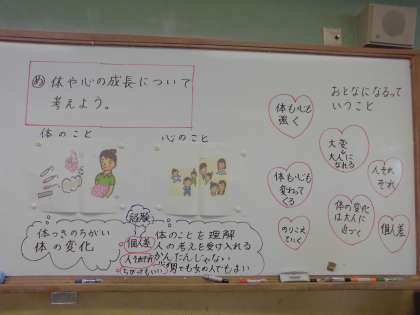 め 体や心の成長について
考えよう。
体のこと
心のこと
体つきのちがい
体の変化
経験
個人差
人それぞれ
ちがってもいい
体のことを理解
人の考えを受け入れる
かんたんじゃない
男でも女の人でもよい
おとなになるって
いうこと
体も心も
強く
大変
大人に
なれる
体も心も
変わって
くる
人それ
ぞれ
のりこえ
ていく
体の変化
は大人に
近づく
個人差